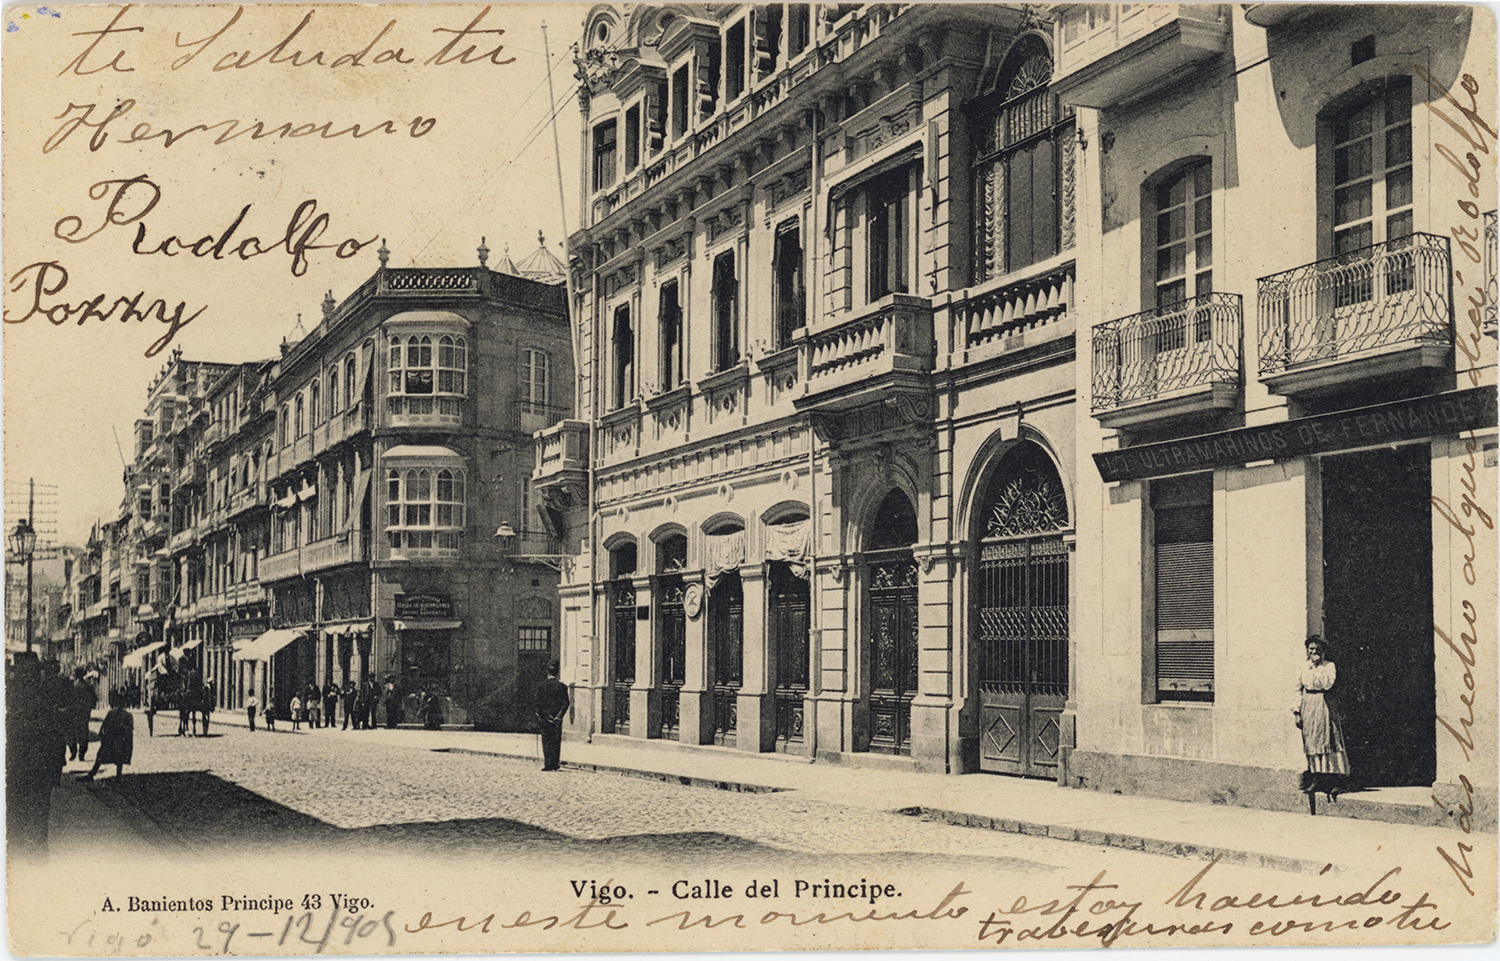 te Saluda tu
Hermano
Rodolfo
Pozzy
ULTRAMARINOS DE FERNANDEZ
Vigo. - Calle del Principe.
A. Banientos Principe 43 Vigo.
Vigo 29-12/905
en este momento estoy haciendo
travesuras como tu
has hecho alguna
Rodolfo